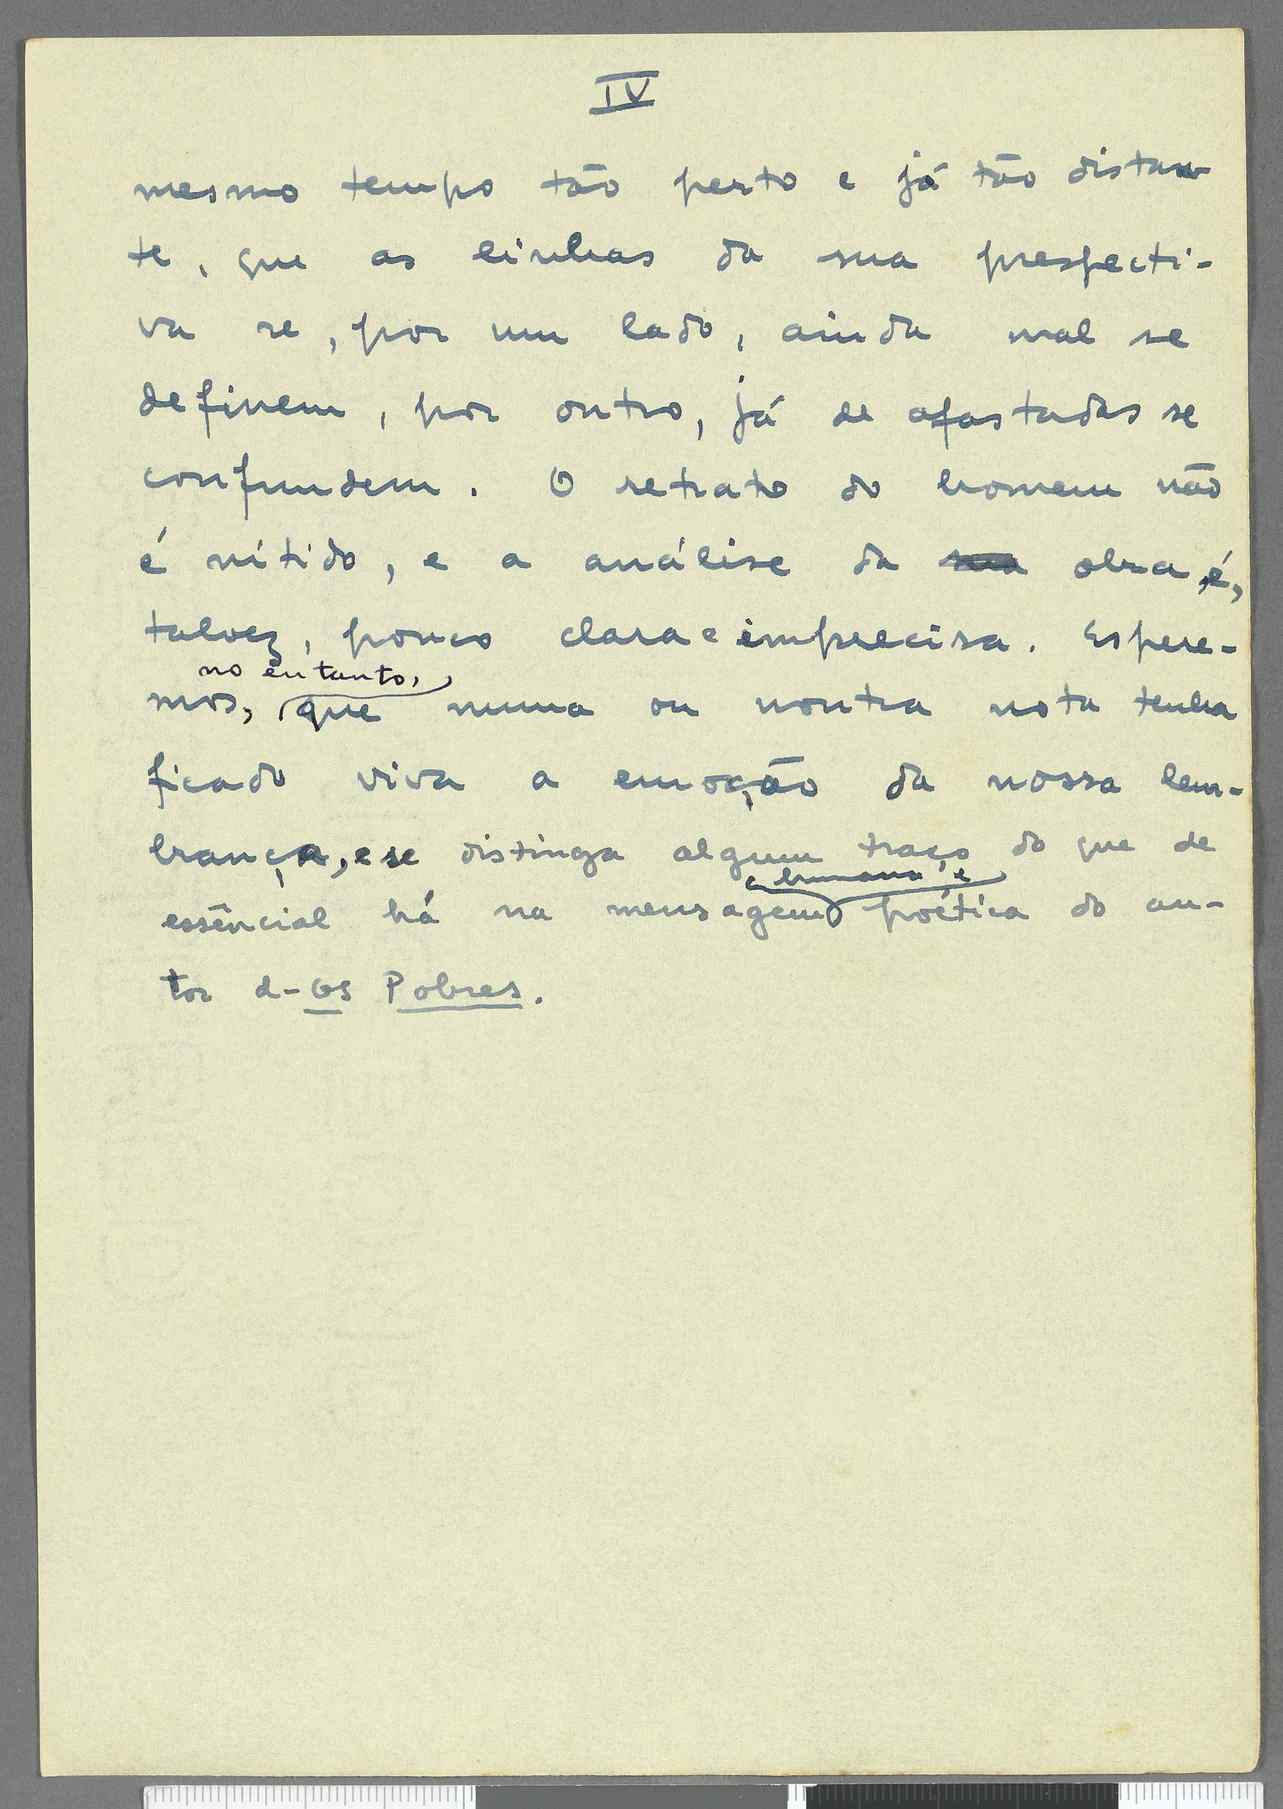 IV
mesmo tempo tão perto e já tão distan-
te, que as linhas da sua prespecti-
va se, por um lado, ainda mal se
definem, por outro, já de afastadas se
confundem. O retrato do homem não
é nítido, e a análise da sua obra, é,
talvez, pouco clara e imprecisa. Espere-
no entanto,
mos, que numa ou noutra nota tenha
ficado viva a emoção da nossa lem-
brança, e se distinga algum traço do que de
humana e
essêncial há na mensagem poética do au-
tor d-Os Pobres.